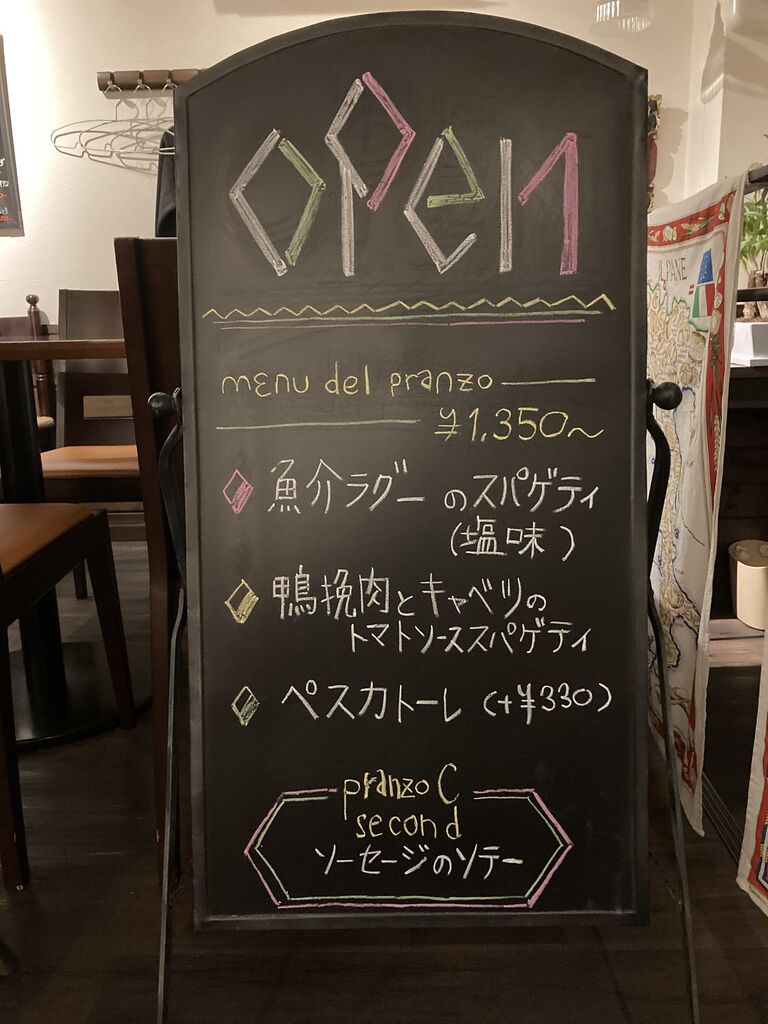 open
menu del pranzo
¥1,350〜
魚介ラグーのスパゲティ
(塩味)
鴨挽肉とキャベツの
トマトソーススパゲティ
ペスカトーレ (+¥330)
pranzo C
second
ソーセージのソテー
PANE